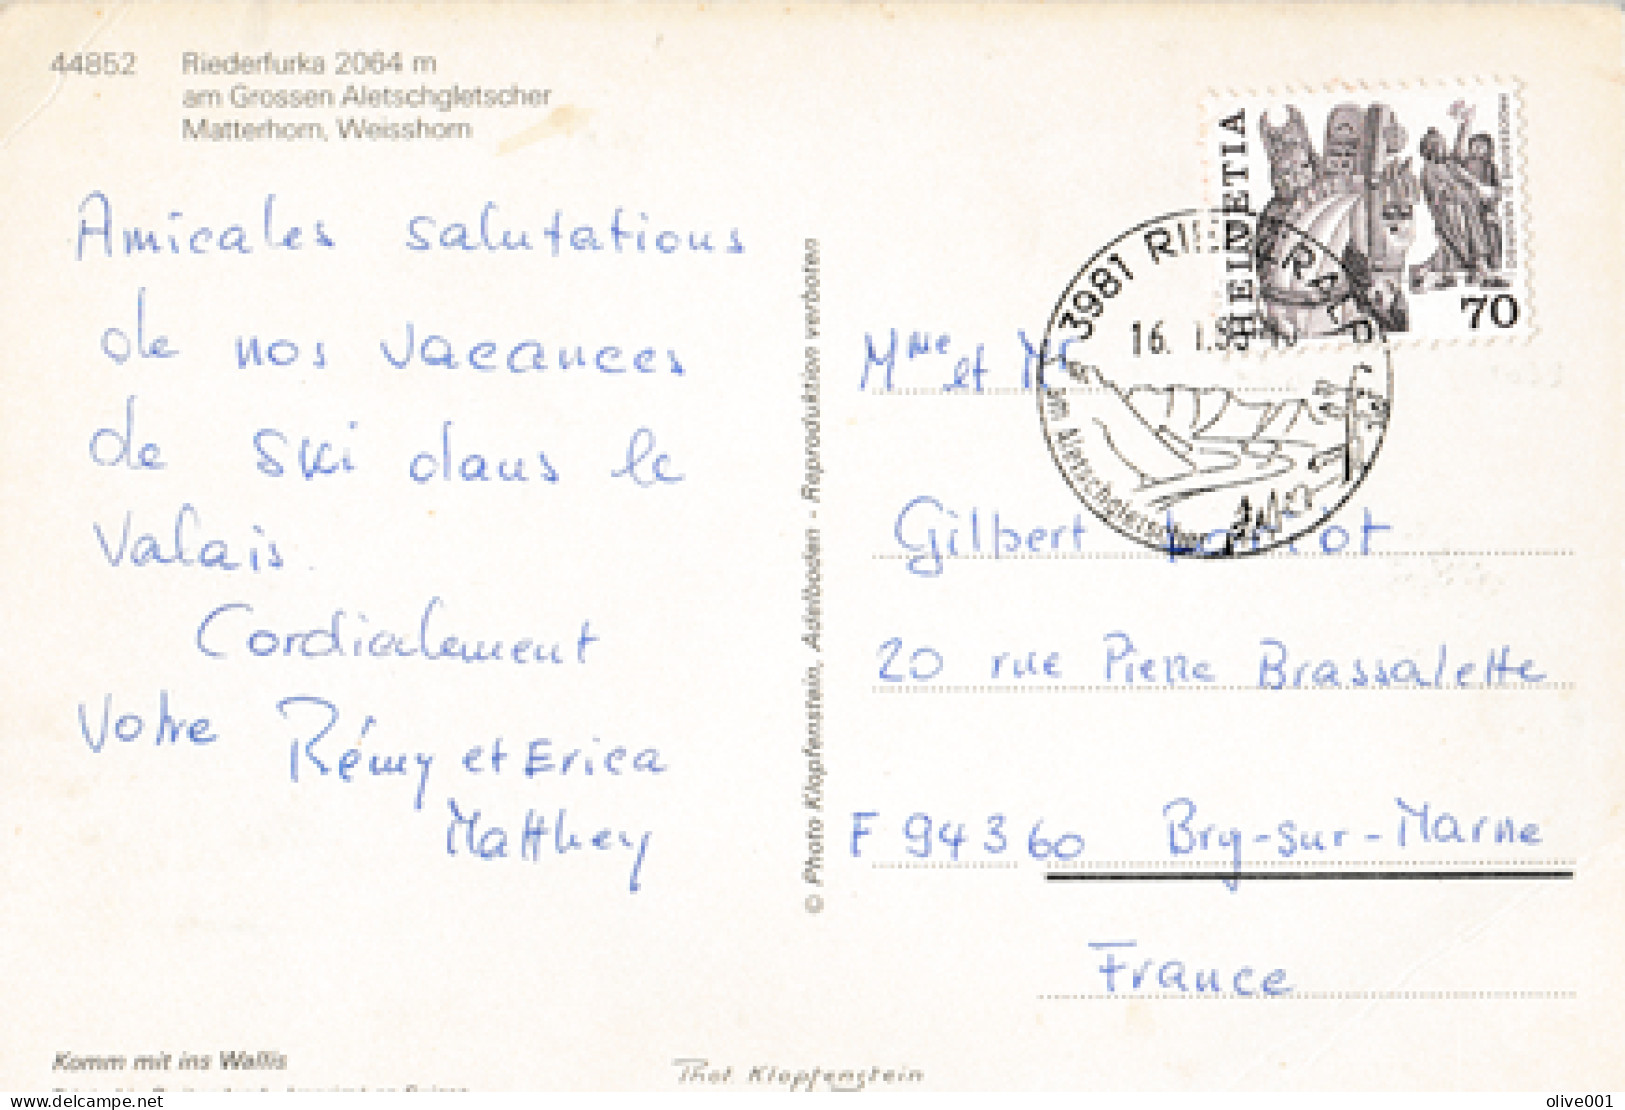 44852 Riederfurka 2064 m
am Grossen Aletschgletscher
Matterhorn, Weisshorn
Amicales salutations
de nos vacances
de ski dans le
Valais
Cordialement
Votre Rémy et Erica
Matthey
Komm mit ins Wallis
© Photo Klopfenstein, Adelboden - Reproduktion verboten
Phot. Klopfenstein
HELVETIA
70
3981 RIEDERALP
16. 1.
am Aletschgletscher
Mme et Mr
Gilbert
20 rue Pierre Brassalette
F 94360 Bry-sur-Marne
France
delcampe.net
olive001